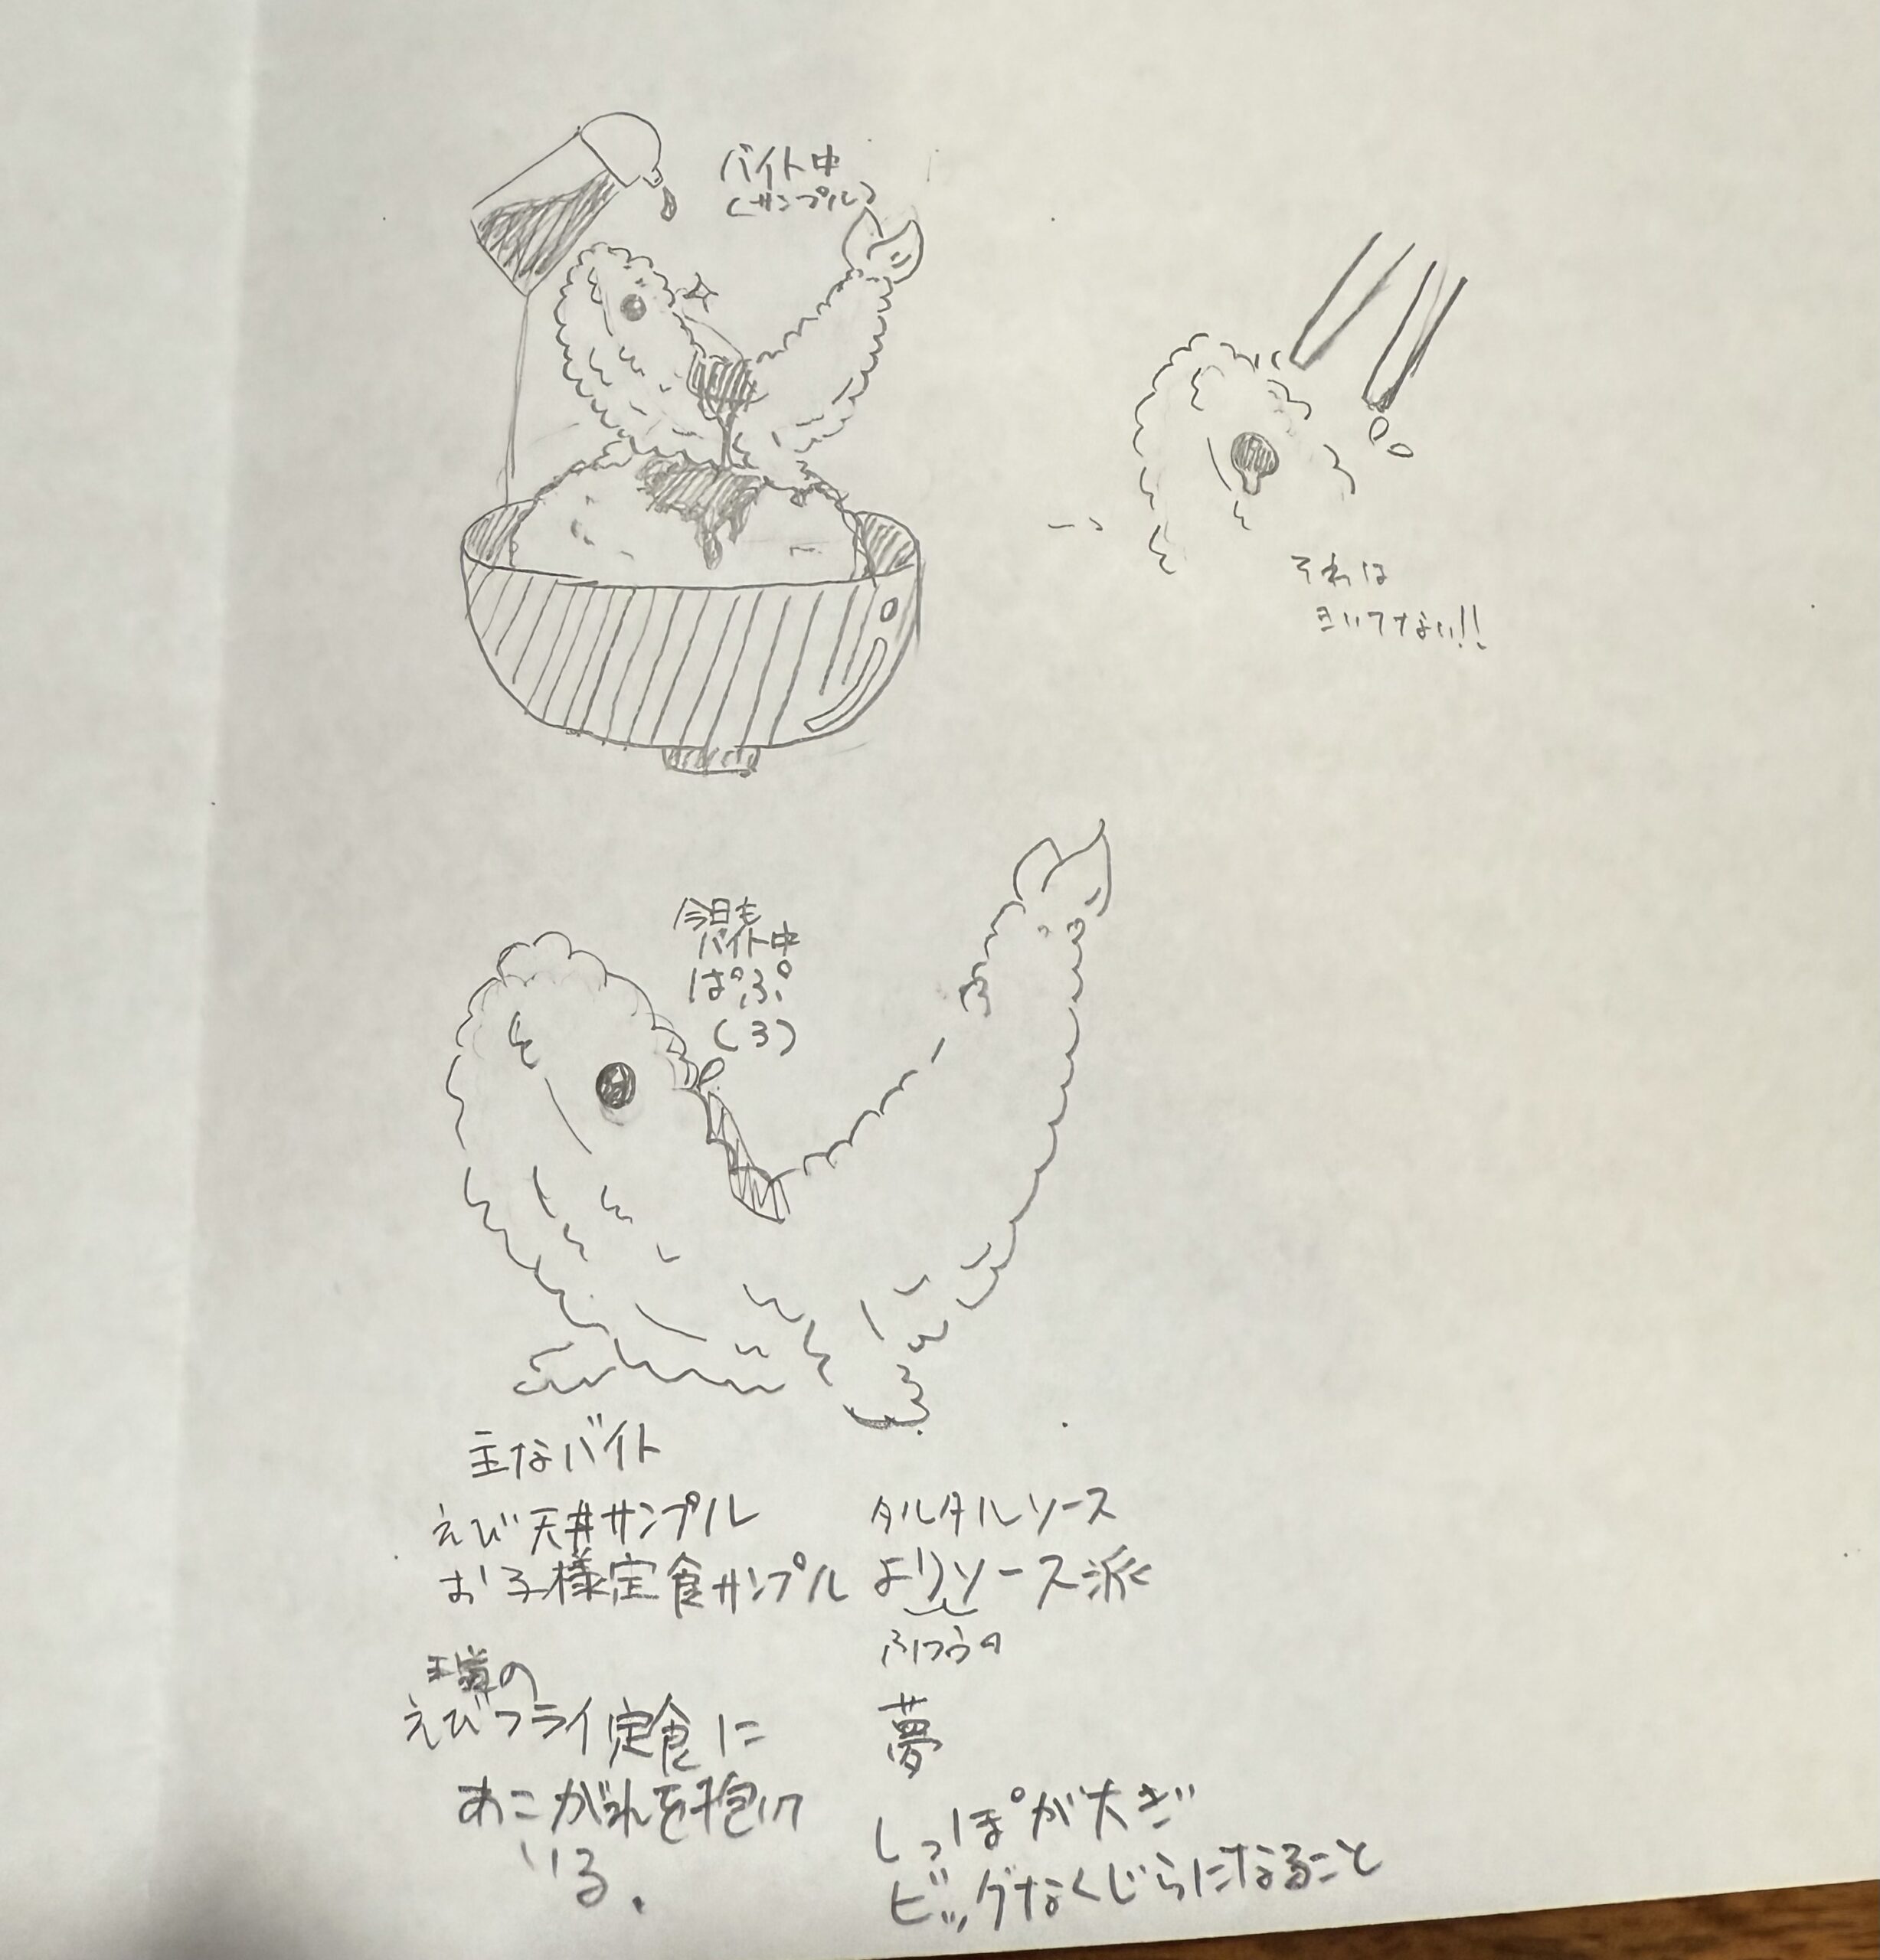 バイト中
(サンプル)
それは
きいてない!!
今日も
バイト中
ぱぷ
(3)
主なバイト
えび天丼サンプル
お子様定食サンプル
王道の
えびフライ定食に
あこがれを抱いて
いる.
タルタルソース
よりソース派
ふつうの
夢
しっぽが大き
ビッグなくじらになること